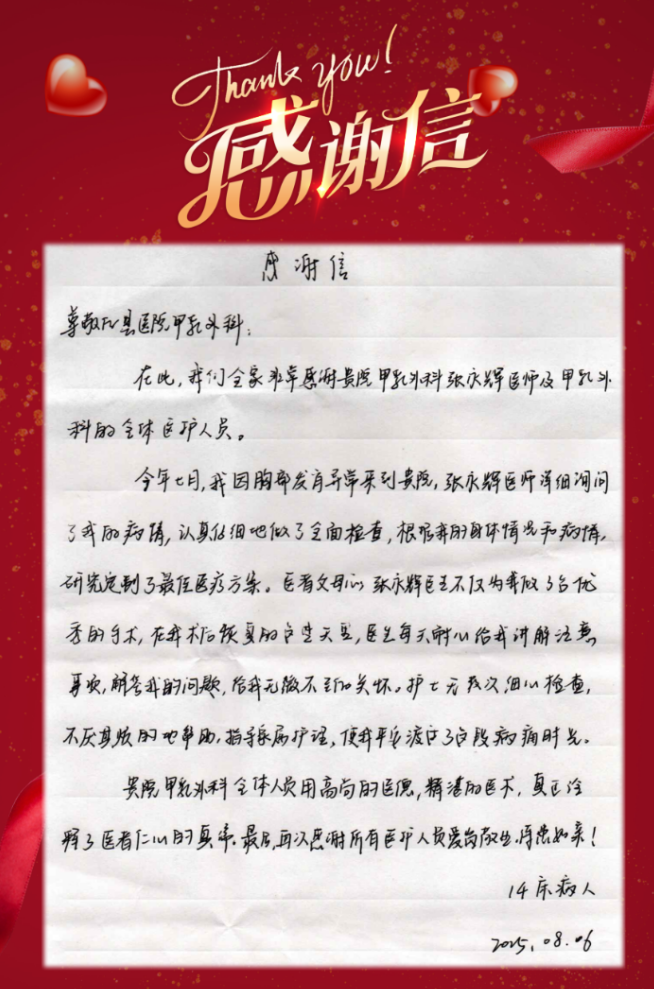 Thank you!
感谢信
感谢信
尊敬的县医院甲乳外科:
在此,我们全家非常感谢贵院甲乳外科张永辉医师及甲乳外
科的全体医护人员。
今年七月,我因胸部发育异常来到贵院,张永辉医师详细询问
了我的病情,认真仔细地做了全面检查,根据我的身体情况和病情,
研究定制了最佳医疗方案。医者父母心 张永辉医生不仅为我做了台优
秀的手术,在我术后恢复的这些天里,医生每天耐心给我讲解注意
事项,解答我的问题,给我无微不至的关怀。护士无数次细心检查,
不厌其烦的地帮助,指导家属护理,使我平安渡过了这段病痛时光。
贵院甲乳外科全体人员用高尚的医德,精湛的医术,真正诠
释了医者仁心的真谛。最后,再次感谢所有医护人员爱岗敬业,待患如亲!
14床病人
2025.08.06